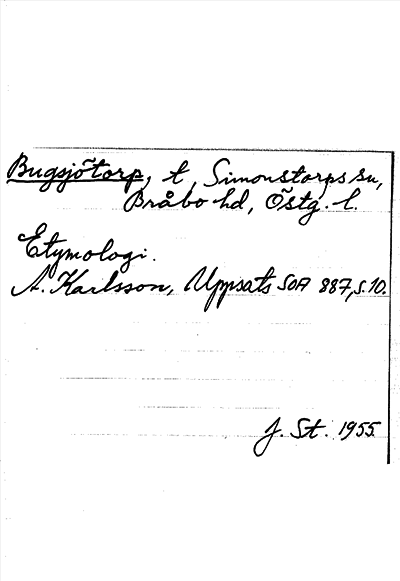 Bugsjötorp, t, Simonstorps sn,
Bråbo hd, Östg. l.
Etymologi.
A. Karlsson, Uppsats SOA 887, s. 10.
J. St. 1955